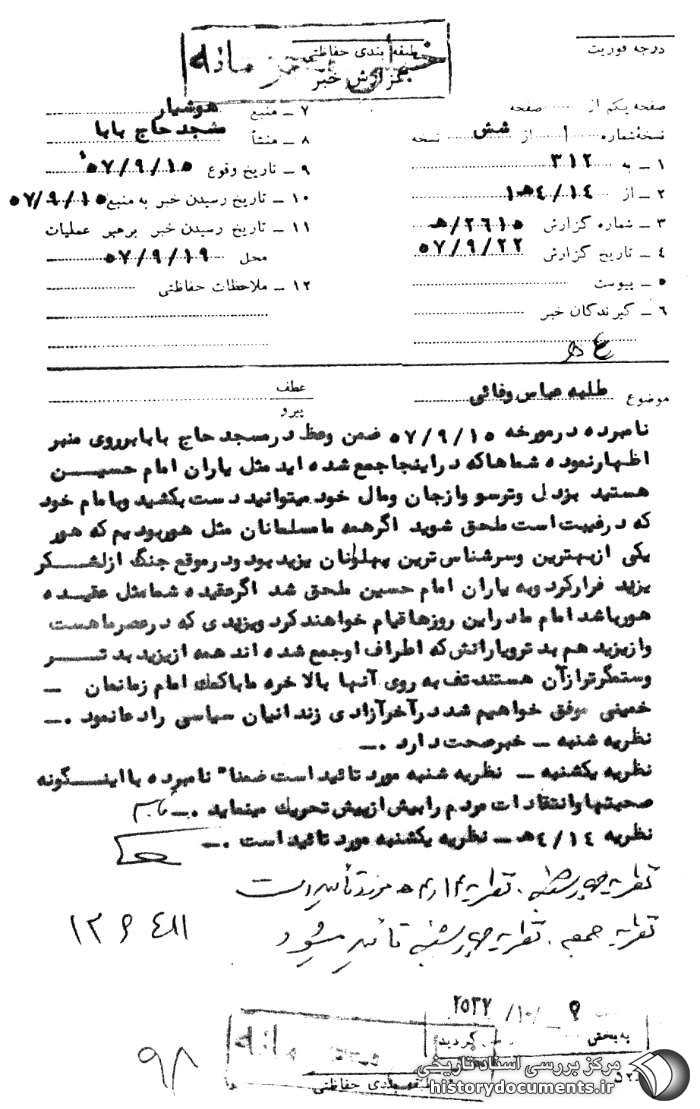 درجه فوریت
طبقه بندی حفاظتی
خیلی محرمانه
گزارش خبر
صفحه یکم از صفحه
نسخه شماره ۱ از شش نسخه
۱ ــ به ۳۱۲
۲ ــ از ۱۴/۴ه‍۱
۳ ــ شماره گزارش ۲۶۱۵/ه‍
۴ ــ تاریخ گزارش ۵۷/۹/۲۲
۵ ــ پیوست
۶ ــ گیرندگان خبر
۷ ــ منبع هوشیار
۸ ــ منشأ مسجد حاج بابا
۹ ــ تاریخ وقوع ۵۷/۹/۱۵
۱۰ ــ تاریخ رسیدن خبر به منبع ۵۷/۹/۱۵
۱۱ ــ تاریخ رسیدن خبر برهبر عملیات
محل ۵۷/۹/۱۹
۱۲ ــ ملاحظات حفاظتی
موضوع طلبه عباس وفائی
عطف
پیرو
نامبرده درمورخه ۵۷/۹/۱۵ ضمن وعظ درمسجد حاج بابابرروی منبر
اظهارنموده شماهاکه دراینجاجمع شده اید مثل یاران امام حسین
هستید بزدل وترسو وازجان ومال خود میتوانید دست بکشید وباامام خود
که درغیبت است ملحق شوید اگرهمه مامسلمانان مثل هوربودیم که هور
یکی ازبهترین وسرشناس ترین پهلوانان یزید بود ودرموقع جنگ ازلشکر
یزید فرارکرد وبه یاران امام حسین ملحق شد اگرعقیده شمامثل عقیده
هورباشد امام مادراین روزهاقیام خواهند کرد ویزیدی که درعصرماهست
وازیزید هم بد ترویارانش که اطراف اوجمع شده اند همه ازیزید بد تر
وستمگرترازآن هستند تف به روی آنها بالاخره ماباکمك امام زمانمان ــ
خمینی موفق خواهیم شد درآخرآزادی زندانیان سیاسی رادعانمود .ــ
نظریه شنبه ــ خبرصحت دارد .ــ
نظریه یکشنبه ــ نظریه شنبه مورد تائید است ضمنا" نامبرده بااینگونه
صحبتهاوانتقادات مردم رابیش ازپیش تحریك مینماید .ــ
نظریه ۱۴/۴ه‍ ــ نظریه یکشنبه مورد تائید است .ــ
نظریه چهارشنبه . نظریه ۱۴/۴ه‍ مورد تأیید است
نظریه جمعه . نظریه چهارشنبه تأیید میشود
۱۲۶۴۸۱
۲۵۳۷/۱۰/۹
به بخش
طبقه بندی حفاظتی
۹۸
مرکز بررسی اسناد تاریخی
historydocuments.ir